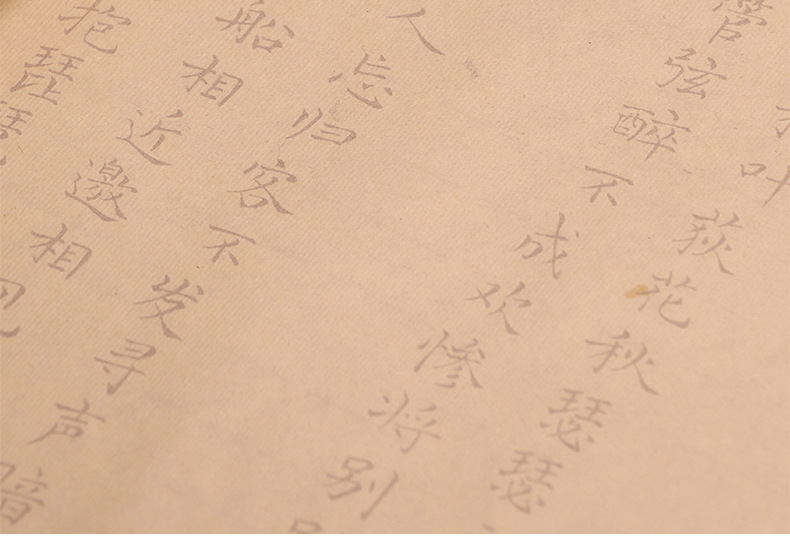 叶荻花秋瑟瑟
管弦醉不成欢惨将别
人忘归客不发寻声暗
船相近邀相见
抱琵